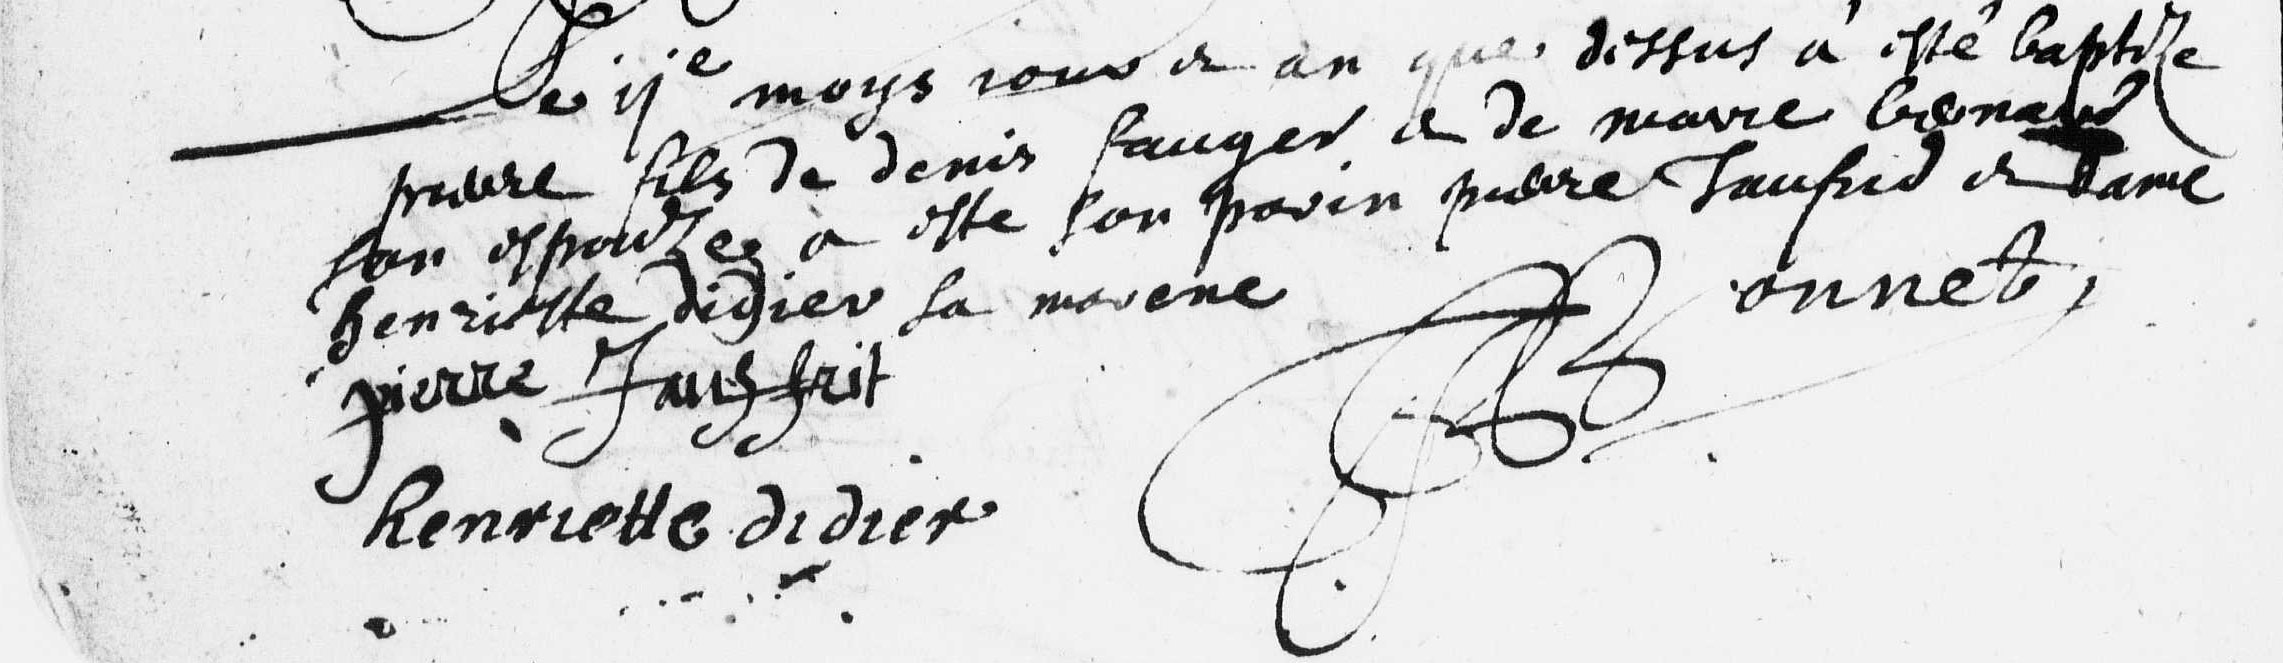 Le ije moys jour et an que dessus a esté baptize
pierre fils de denis fauger et de marie bernard
son espouze a este son parin pierre Jaufrid et dame
henriette didier sa marene
Bonnet
pierre Jauffrit
henriette didier